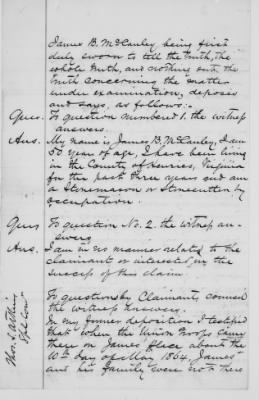 James B. McCauley, being first
duly sworn to tell the truth, the
whole truth, and nothing but the
truth concerning the matter
under examination, deposes
and says, as follows:-
Ques. To question numbered 1. the witness
answers.
Ans. My name is James B. McCauley, I am
50 year of age, I have been living
in the County of Henrico, Virginia
for the past three years and am
a Stonemason or Stonecutter by
occupation.
Ques To question No. 2. the witness an-
swers
Ans. I am in no manner related to the
claimant or interested in the
success of this claim.
To question by Claimants counsel
the witness answers.
In my former deposition I testified
that when the Union troops came
there on James' place about the
10th day of May 1864, James
and his family were not there